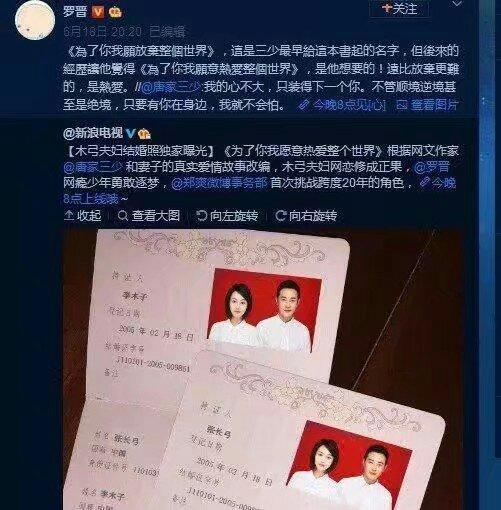 罗晋
+关注
6月18日 20:20 已编辑
《為了你我願放棄整個世界》，這是三少最早給這本書起的名字，但後來的
經歷讓他覺得《為了你我願意熱愛整個世界》，是他想要的！這比放棄更難
的，是熱愛。//@唐家三少:我的心不大，只装得下一个你。不管顺境逆境甚
至是绝境，只要有你在身边，我就不会怕。 今晚8点见[心] 查看图片
@新浪电视
【木弓夫妇结婚照独家曝光】《为了你我愿意热爱整个世界》根据网文作家
@唐家三少 和妻子的真实爱情故事改编，木弓夫妇网恋修成正果，@罗晋
网瘾少年勇敢逐梦，@郑爽微博事务部 首次挑战跨度20年的角色，今晚
8点上线哦~
收起 查看大图 向左旋转 向右旋转
持证人
李木子
登记日期
2005 年 02 月 18 日
结婚证字号
J110101-2005-009851
备注
持证人
张长弓
登记日期
2005 年 02 月 18 日
结婚证字号
J110101-2005-009851
备注
姓名 张长弓
国籍 中国
身份证件号 110103
姓名 李木子
国籍 中国